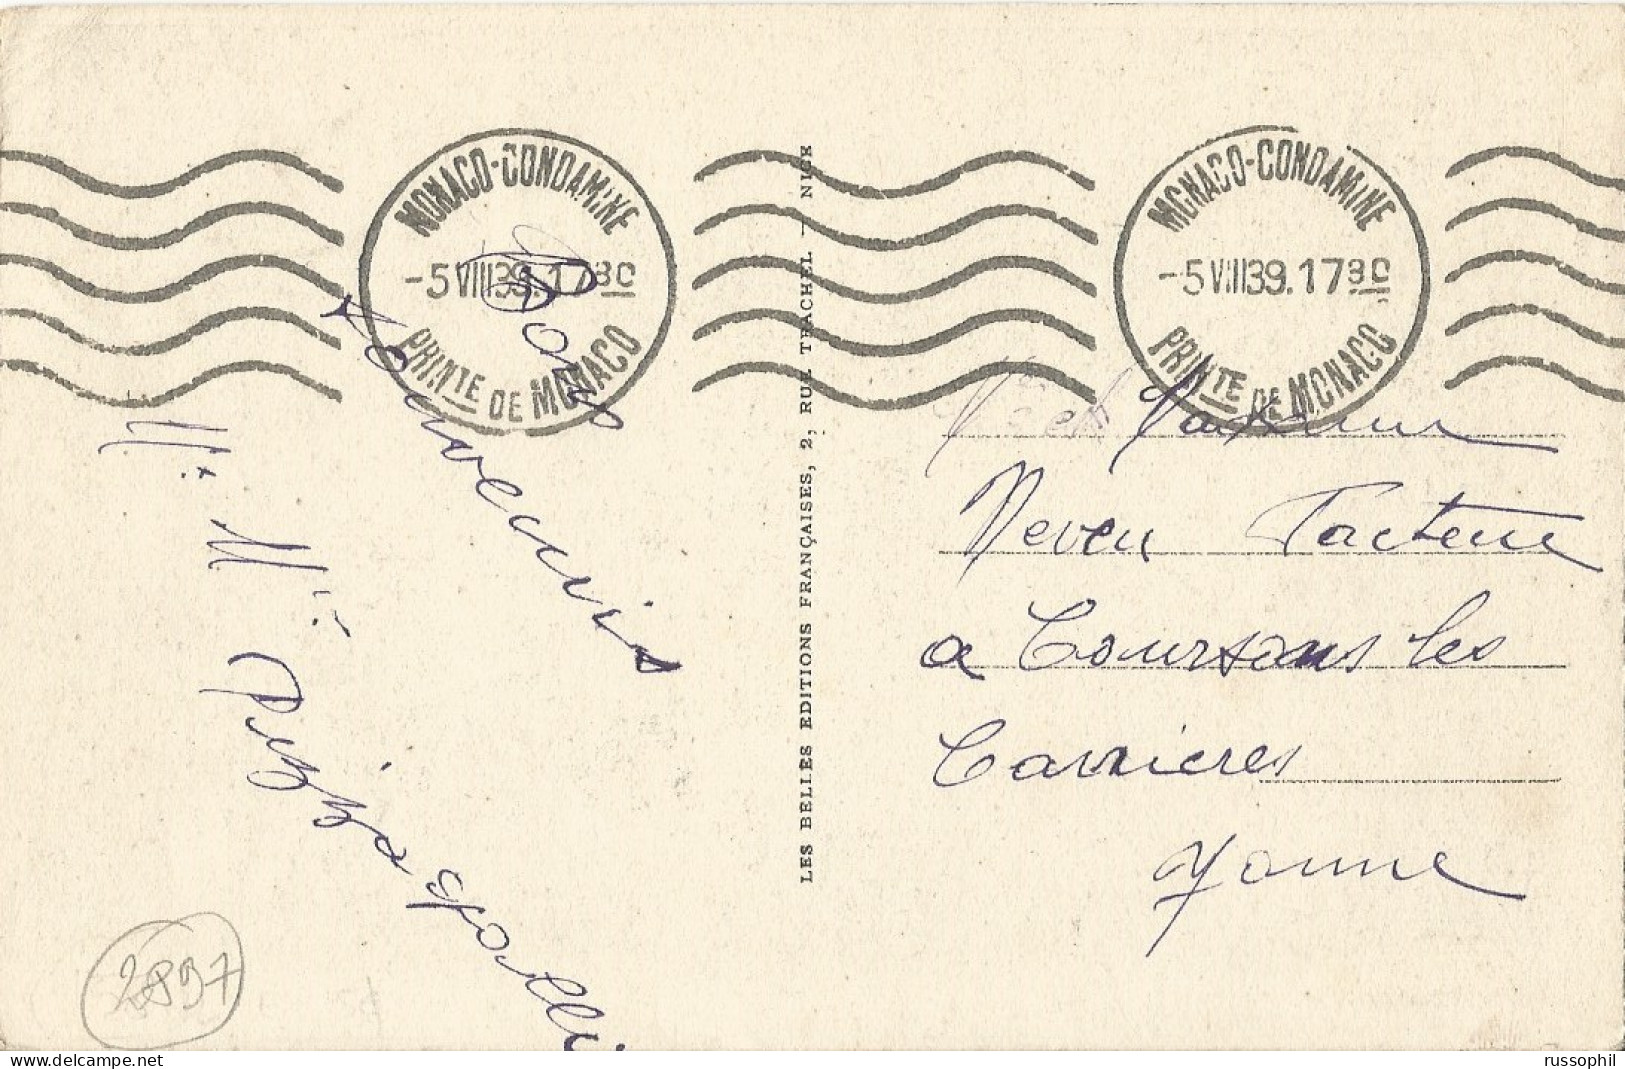 MONACO-CONDAMINE
-5 VIII 39. 17 30
PRINTE DE MONACO
MONACO-CONDAMINE
-5 VIII 39. 17 30
PRINTE DE MONACO
Bons
souvenirs
Mr Mme
LES BELLES EDITIONS FRANÇAISES, 2, RUE TRACHEL - NICE
Neveu Facteur
a Coursons les
Carrieres
Yonne
2897
delcampe.net
russophil